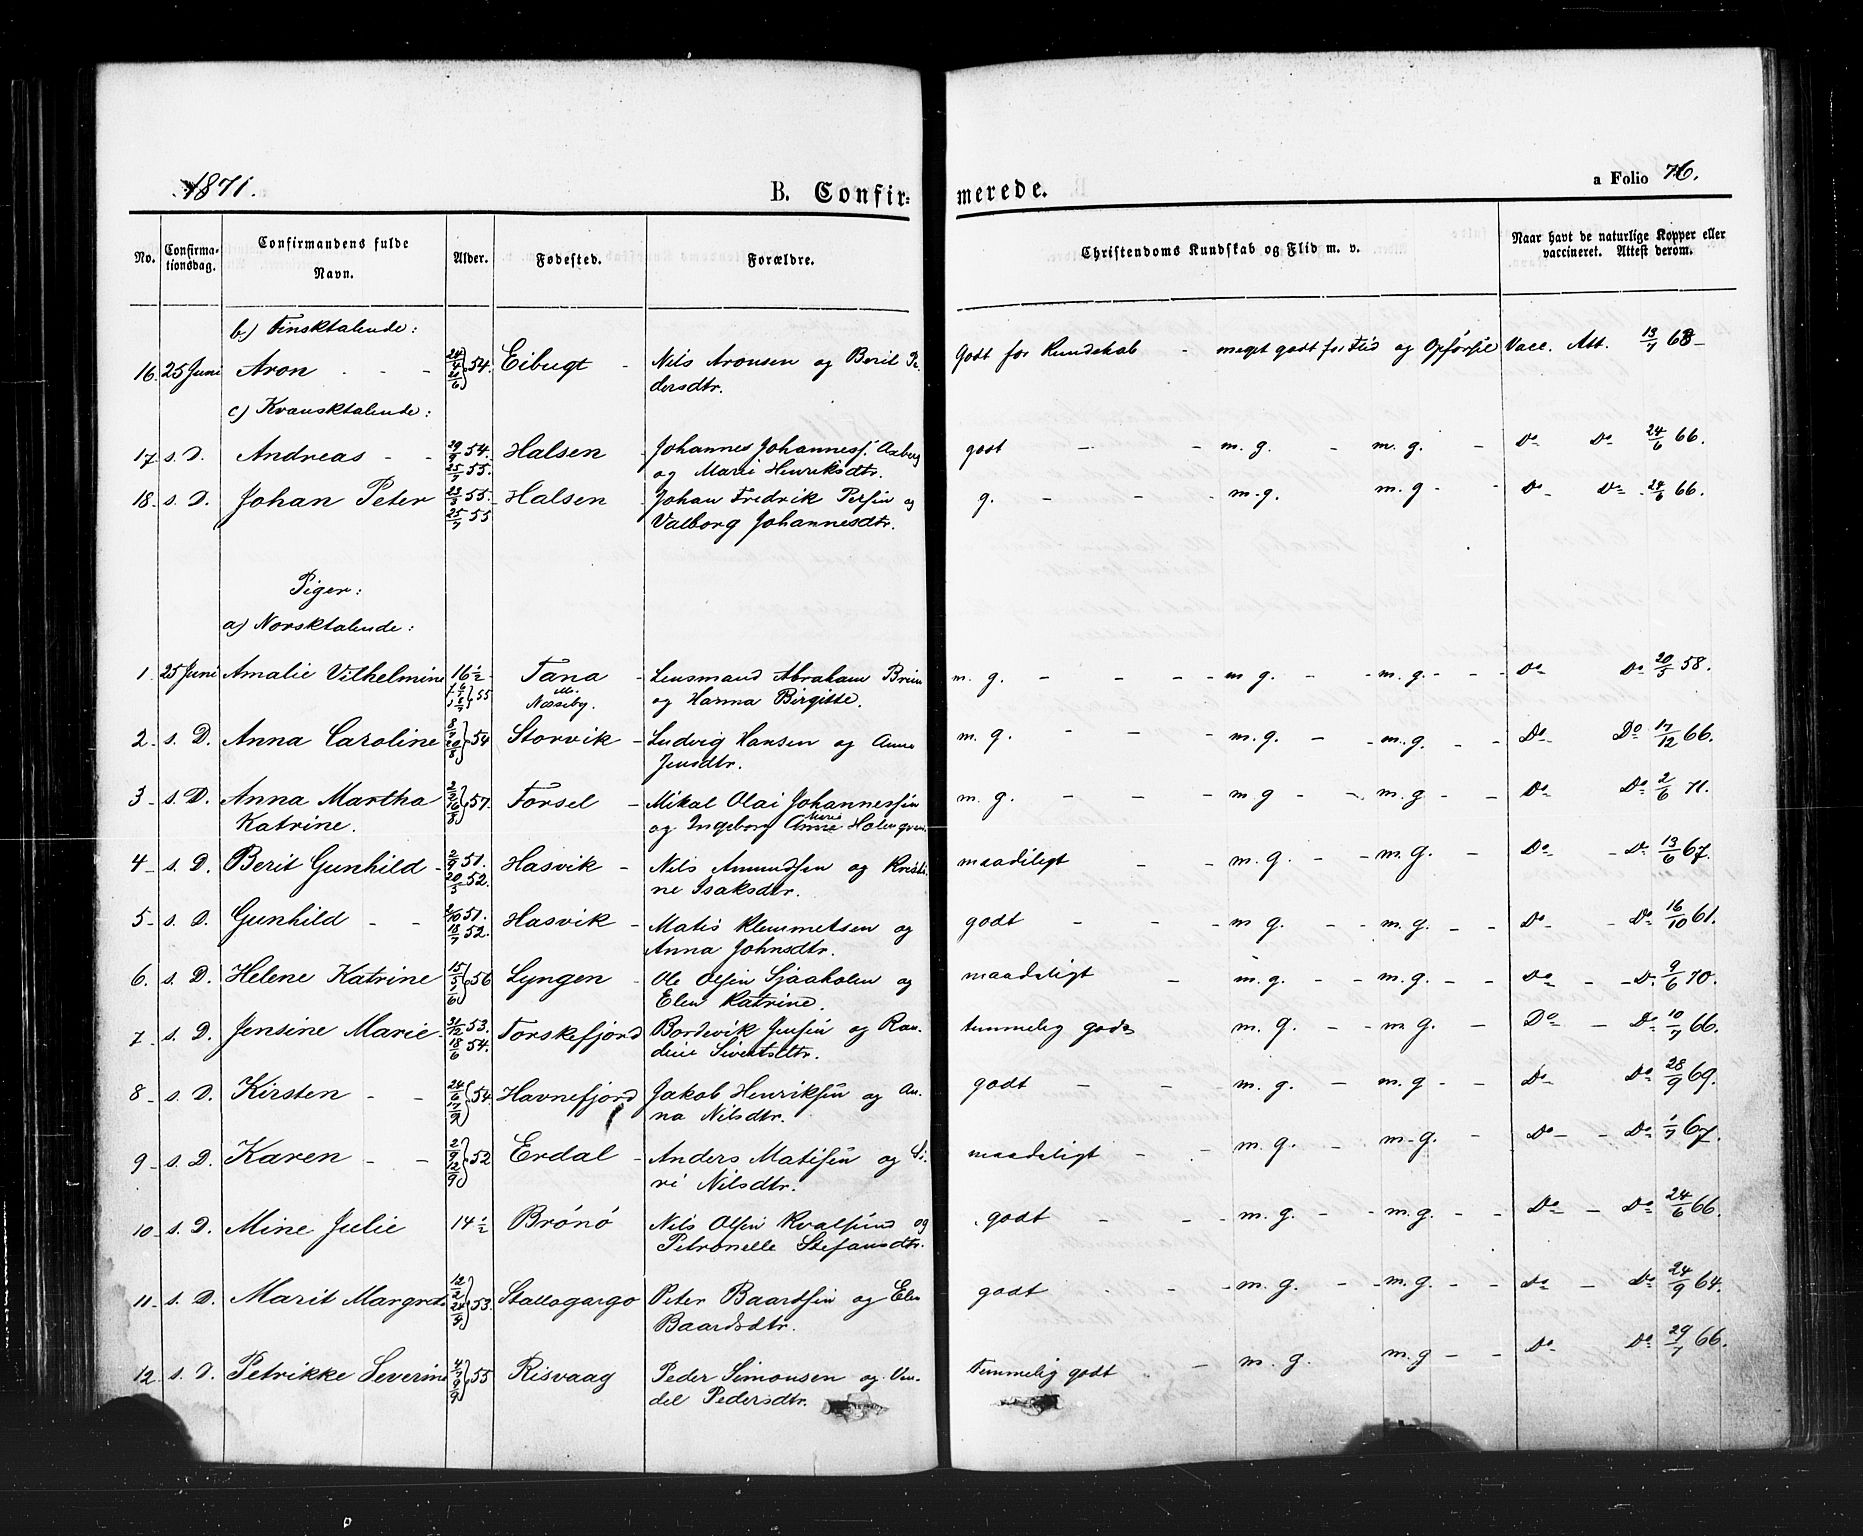 1871.
B. Confir-
merede.
a Folio 76.
No.
Confirma-
tionsdag.
Confirmandens fulde
Navn.
Alder.
Fødested.
Forældre.
Christendoms Kundskab og Flid m. v.
Naar havt de naturlige Kopper eller
vaccineret. Attest derom.
b) Finsktalende:
16. 25 Juni Aron - - 24/4 21/6 } 54. Eibugt - Nils Aronsen og Berit Pe- Godt for Kundskab - meget godt for Flid og Opførsel Vacc. Att. 13/7 68
dersdtr.
c) Kvænsktalende:
17. s. D. Andreas - - 29/9 54. Halsen - Johannes Johanness. Aaberg godt - - m. g. - m. g. - Do Do 24/6 66.
25/7 55. og Marie Henriksdtr.
18. s. D. Johan Peter 23/3 55. Halsen - Johan Fredrik Persen og g. - - - m. g. m. g. - - Do Do 24/6 66.
25/7 55 Valborg Johannesdtr.
Piger:
a) Norsktalende:
1. 25 Juni Amalie Vilhelmine 16 1/2 Tana - Lensmand Abraham Brun m. g. - - - m g. - m. g. - - Do Do 20/5 58.
55 Næsseby. og Hanna Birgitte.
2. s. D. Anna Caroline 8/7 20/8 } 54 Storvik - Ludvig Hansen og Anne m. g. - - - m. g. - - m. g. - - Do Do 17/12 66.
Jensdtr.
3. s. D. Anna Martha 57. Forsøl - Mikal Olai Johannessen m. g. - - - m g - - m. g - - Do Do 2/6 71.
Katrine. og Ingeborg Anna Marie
4. s. D. Berit Gunhild 2/9 51. Hasvik - Nils Amundsen og Kristi- maadeligt - - m. g. - - m. g. - Do - Do 13/6 67.
20/5 52. ne Isaksdtr.
5. s. D. Gunhild - - 2/10 51. Hasvik - Matis Klemmetsen og godt - - - m. g. - - m. g. - - Do - Do 16/10 61.
18/7 52. Anna Johnsdtr.
6. s. D. Helene Katrine 15/5 1/6 } 56 Lyngen - Ole Olsen Sjaaholm og maadeligt - m. g. - - m. g. - - Do - - Do 9/6 70.
Elen Katrine.
7. s. D. Jensine Marie - 31/12 53. Torskefjord Bordevik Jensen og Ran- temmelig godt m. g. - - m. g. - Do - Do 10/7 66.
18/6 54. dine Sivertsdtr.
8. s. D. Kirsten - - 24/6 17/9 } 54. Havnefjord Jakob Henriksen og An- godt - - - m. g. - m. g - - Do - Do 28/9 69.
na Nilsdtr.
9. s. D. Karen - - 2/9 12/9 } 52 Erdal - Anders Matisen og Si- maadeligt - - m. g. - m. g. - Do - - Do 1/7 67.
ri Nilsdtr.
10. s. D. Mine Julie 14 1/2 Brønø Nils Olsen Kvalsund og godt - - - m. g. - - m. g. - - Do - Do 24/6 66.
Petronelle Stefansdtr.
11. s. D. Marit Margrete 12/2 24/4 } 53. Stallogargo Peter Baardsen og Elen godt - - m. g. - - m. g. - - Do - Do 24/9 64.
Baardsdtr.
12. s. D. Petrikke Severine 4/3 9/9 } 55 Risvaag Peder Simonsen og Ven- temmelig godt - m. g. m. g - - Do Do 29/7 66.
del Pedersdtr.